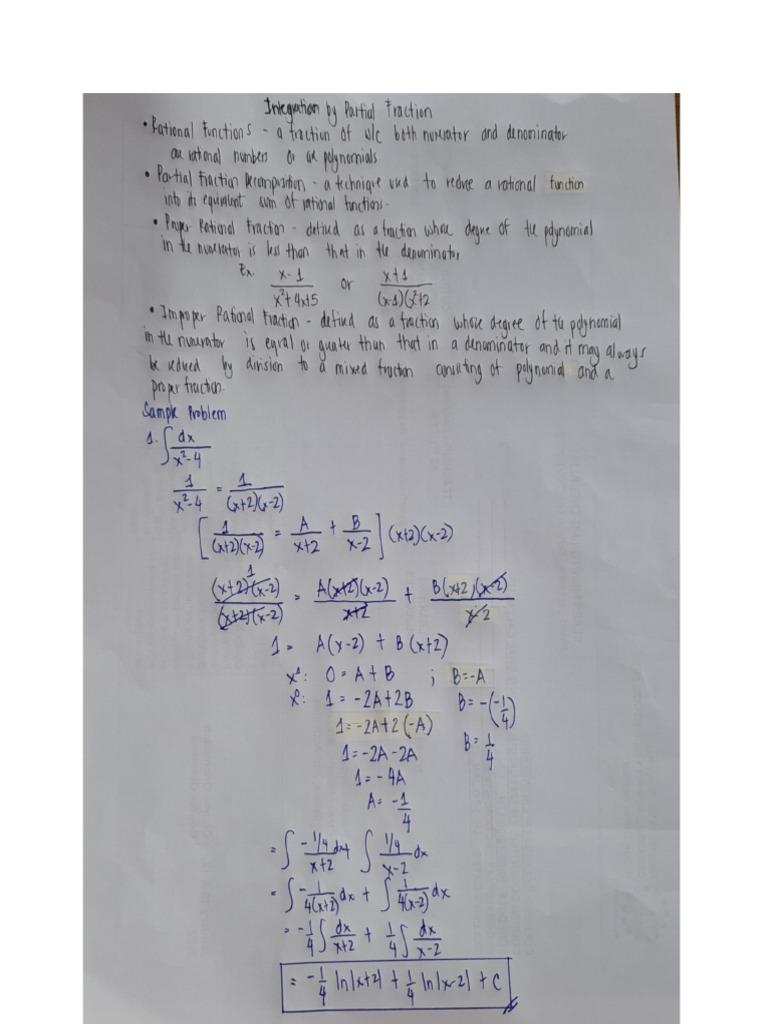 Integration by Partial Fraction
• Rational Functions - a fraction of w/c both numerator and denominator
are rational numbers or are polynomials
• Partial Fraction Decomposition - a technique used to reduce a rational function
into its equivalent sum of rational functions.
• Proper Rational Fraction - defined as a fraction whose degree of the polynomial
in the numerator is less than that in the denominator.
Ex. (x-1)/(x²+4x+5) or (x+1)/((x-1)(x²+2
• Improper Rational Fraction - defined as a fraction whose degree of the polynomial
in the numerator is equal or greater than that in a denominator and it may always
be reduced by division to a mixed fraction consisting of polynomial and a
proper fraction.
Sample Problem
1. ∫ dx/(x²-4)
1/(x²-4) = 1/((x+2)(x-2))
[1/((x+2)(x-2)) = A/(x+2) + B/(x-2)] (x+2)(x-2)
1
(x+2)(x-2)/((x+2)(x-2)) = A(x+2)(x-2)/(x+2) + B(x+2)(x-2)/(x-2)
1 = A(x-2) + B(x+2)
x¹: 0 = A + B ; B=-A
x⁰: 1 = -2A+2B B= -(-1/4)
1=-2A+2(-A) B= 1/4
1=-2A-2A
1=-4A
A= -1/4
= ∫ (-1/4)/(x+2) dx + ∫ (1/4)/(x-2) dx
= ∫ -1/(4(x+2)) dx + ∫ 1/(4(x-2)) dx
= -1/4 ∫ dx/(x+2) + 1/4 ∫ dx/(x-2)
= -1/4 ln|x+2| + 1/4 ln|x-2| + C